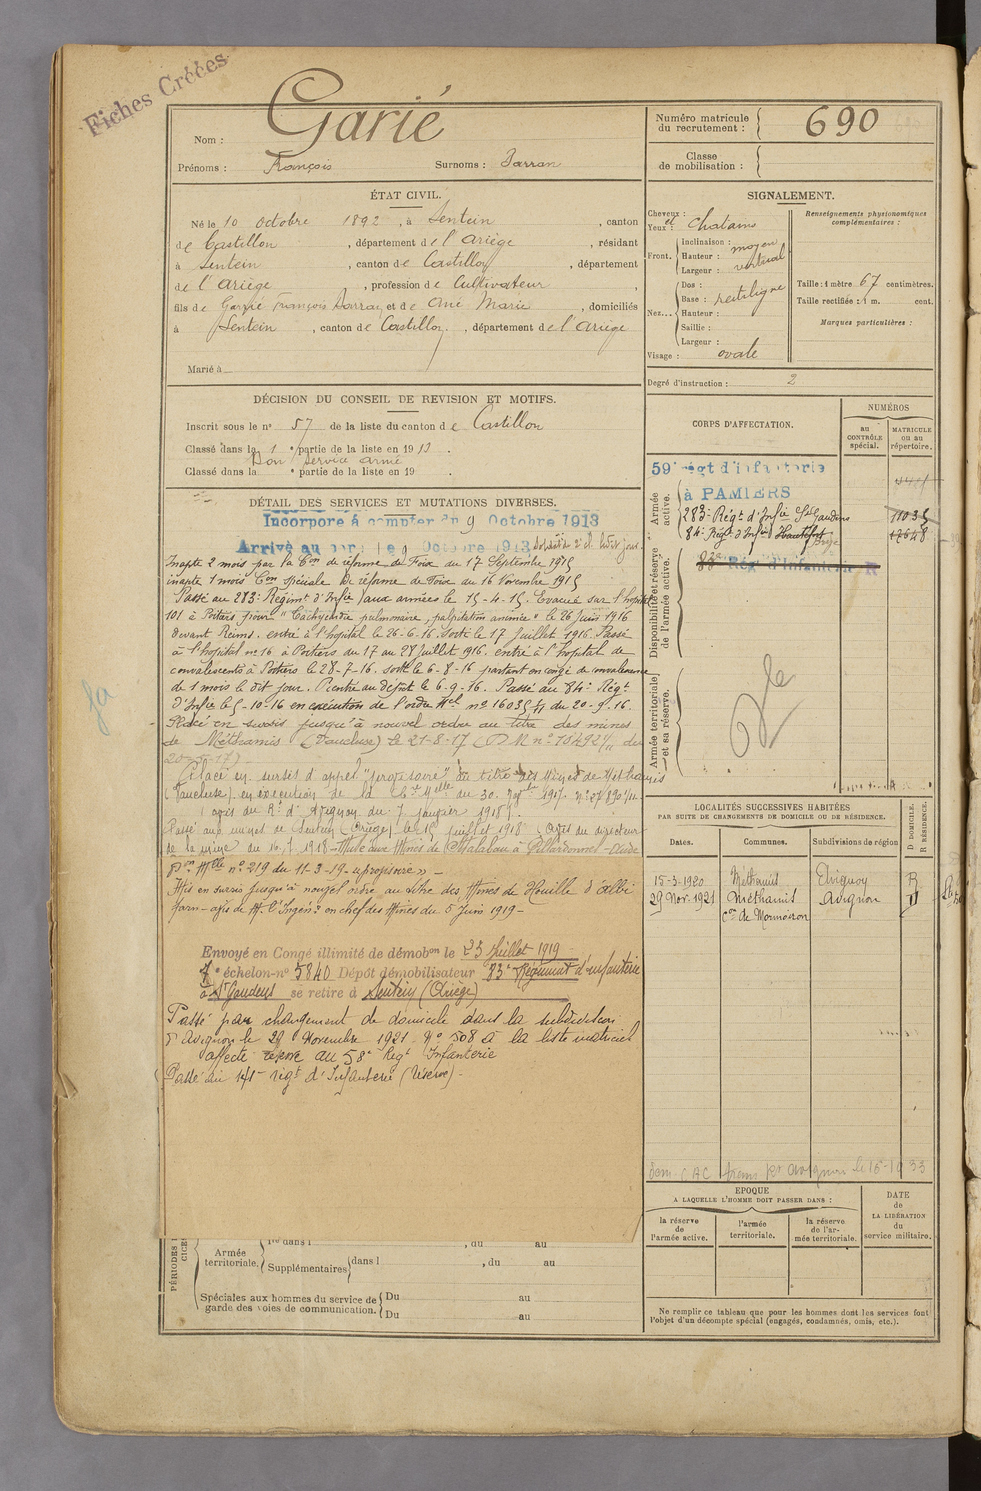 Fiches Créées
Nom : Garié
Prénoms : François Surnoms : Darran
Numéro matricule du recrutement : 690
Classe de mobilisation :
ÉTAT CIVIL.
Né le 10 octobre 1892, à Sentein, canton
de Castillon, département de l'Ariège, résidant
à Sentein, canton de Castillon, département
de l'Ariège, profession de Cultivateur,
fils de Garrié François Darran et de Ané Marie, domiciliés
à Sentein, canton de Castillon, département de l'Ariège
Marié à
DÉCISION DU CONSEIL DE REVISION ET MOTIFS.
Inscrit sous le n° 57 de la liste du canton de Castillon
Classé dans la 1 e partie de la liste en 1913.
Bon service armé
Classé dans la e partie de la liste en 19 .
DÉTAIL DES SERVICES ET MUTATIONS DIVERSES.
Incorporé à compter du 9 Octobre 1913
Arrivé au corps le 9 Octobre 1913, soldat de 2e cl. le dit jour.
Inapte 2 mois par la Con de réforme de Foix du 17 Septembre 1915
inapte 1 mois Con spéciale de réforme de Foix du 16 Novembre 1915
Passé au 283e Régimt d'Infie (aux armées le 15-4-15. Evacué sur l'hôpital
101 à Poitiers pour "Tachycardie pulmonaire, palpitation animée" le 26 juin 1916
devant Reims. entré à l'hôpital le 26-6-16. sorti le 17 Juillet 1916. Passé
à l'hôpital n° 16 à Poitiers du 17 au 28 Juillet 1916. entré à l'hôpital de
convalescents à Poitiers le 28-7-16. sorti le 6-8-16 partant en congé de convalescence
de 1 mois le dit jour. Rentré au dépôt le 6-9-16. Passé au 84e Régt
d'Infie le 5-10-16 en exécution de l'ordre Mel n° 16035 du 20-9-16.
Placé en sursis jusqu'à nouvel ordre au titre des mines
de Méthamis (Vaucluse) le 21-8-17 (D M n° 18492 du
Placé en sursis d'appel "provisoire" au titre des Mines de Méthamis
(Vaucluse) en exécution de la Cre Melle du 30
(avis du Rt d'Avignon du 7 janvier 1918).
Passé aux mines de Sentein (Ariège) le 15 juillet 1918 (avis du directeur
de la mine du 16-7-1918 - Muté aux Mines de Malabau à Villardonnel - Aude
Don Melle n° 219 du 11-3-19 "provisoire" -
Mis en sursis jusqu'à nouvel ordre au titre des Mines de Houille d'Albi
Tarn - avis de M. l'Ingénr en chef des Mines du 5 Juin 1919 -
Envoyé en Congé illimité de démobon le 23 Juillet 1919
7e échelon-n° 5840 Dépôt démobilisateur 83e Régiment d'infanterie
à St Gaudens se retire à Sentein (Ariège)
Passé par changement de domicile dans la subdivision
d'Avignon le 29 Novembre 1921 N° 508 à la liste matricule
affecté réserve au 58e Regt Infanterie
Passé au 141e régt d'Infanterie (réserve) -
PÉRIODES
Armée territoriale.
dans l , du au
Supplémentaires dans l , du au
Spéciales aux hommes du service de garde des voies de communication.
Du au
Du au
SIGNALEMENT.
Cheveux :
Yeux : et chatains
Front. Inclinaison : moyen
Hauteur : vertical
Largeur :
Nez... Dos :
Base : rectiligne
Hauteur :
Saillie :
Largeur :
Visage : ovale
Renseignements physionomiques complémentaires :
Taille : 1 mètre 67 centimètres.
Taille rectifiée : 1 m. cent.
Marques particulières :
Degré d'instruction : 2
CORPS D'AFFECTATION.
NUMÉROS
au CONTRÔLE spécial.
MATRICULE ou au répertoire.
Armée active.
59e régt d'infanterie
à PAMIERS
283e Régt d'Infie St Gaudens 11035
84e Régt d'Infie Hautefort 17648
Disponibilité et réserve de l'armée active.
83e Rég. d'Infanterie
Armée territoriale et sa réserve.
LOCALITÉS SUCCESSIVES HABITÉES
PAR SUITE DE CHANGEMENTS DE DOMICILE OU DE RÉSIDENCE.
Dates. Communes. Subdivisions de région D DOMICILE. R RÉSIDENCE.
15-3-1920 Méthamis Avignon R
29 Nov. 1921 Méthamis Avignon D
Con de Mormoiron
EPOQUE
A LAQUELLE L'HOMME DOIT PASSER DANS :
la réserve de l'armée active.
l'armée territoriale.
la réserve de l'armée territoriale.
DATE de LA LIBÉRATION du service militaire.
Ne remplir ce tableau que pour les hommes dont les services font
l'objet d'un décompte spécial (engagés, condamnés, omis, etc.).